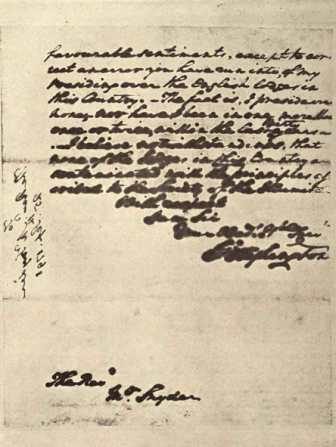 favourable sentiments, except to cor
rect an error you have run into, of my
Presiding over the English lodges in
this Country. The fact is, I preside over
none, nor have I been in one more than
once or twice, within the last thirty years
I believe notwithstanding, that
none of the Lodges in this Country are
contaminated with the principles as
cribed to the Society of the Illuminati
With respect
I am Sir
Your Obedt
Go Washington
The Revd
Mr Snyder